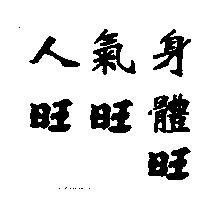 身體旺
氣旺
人旺